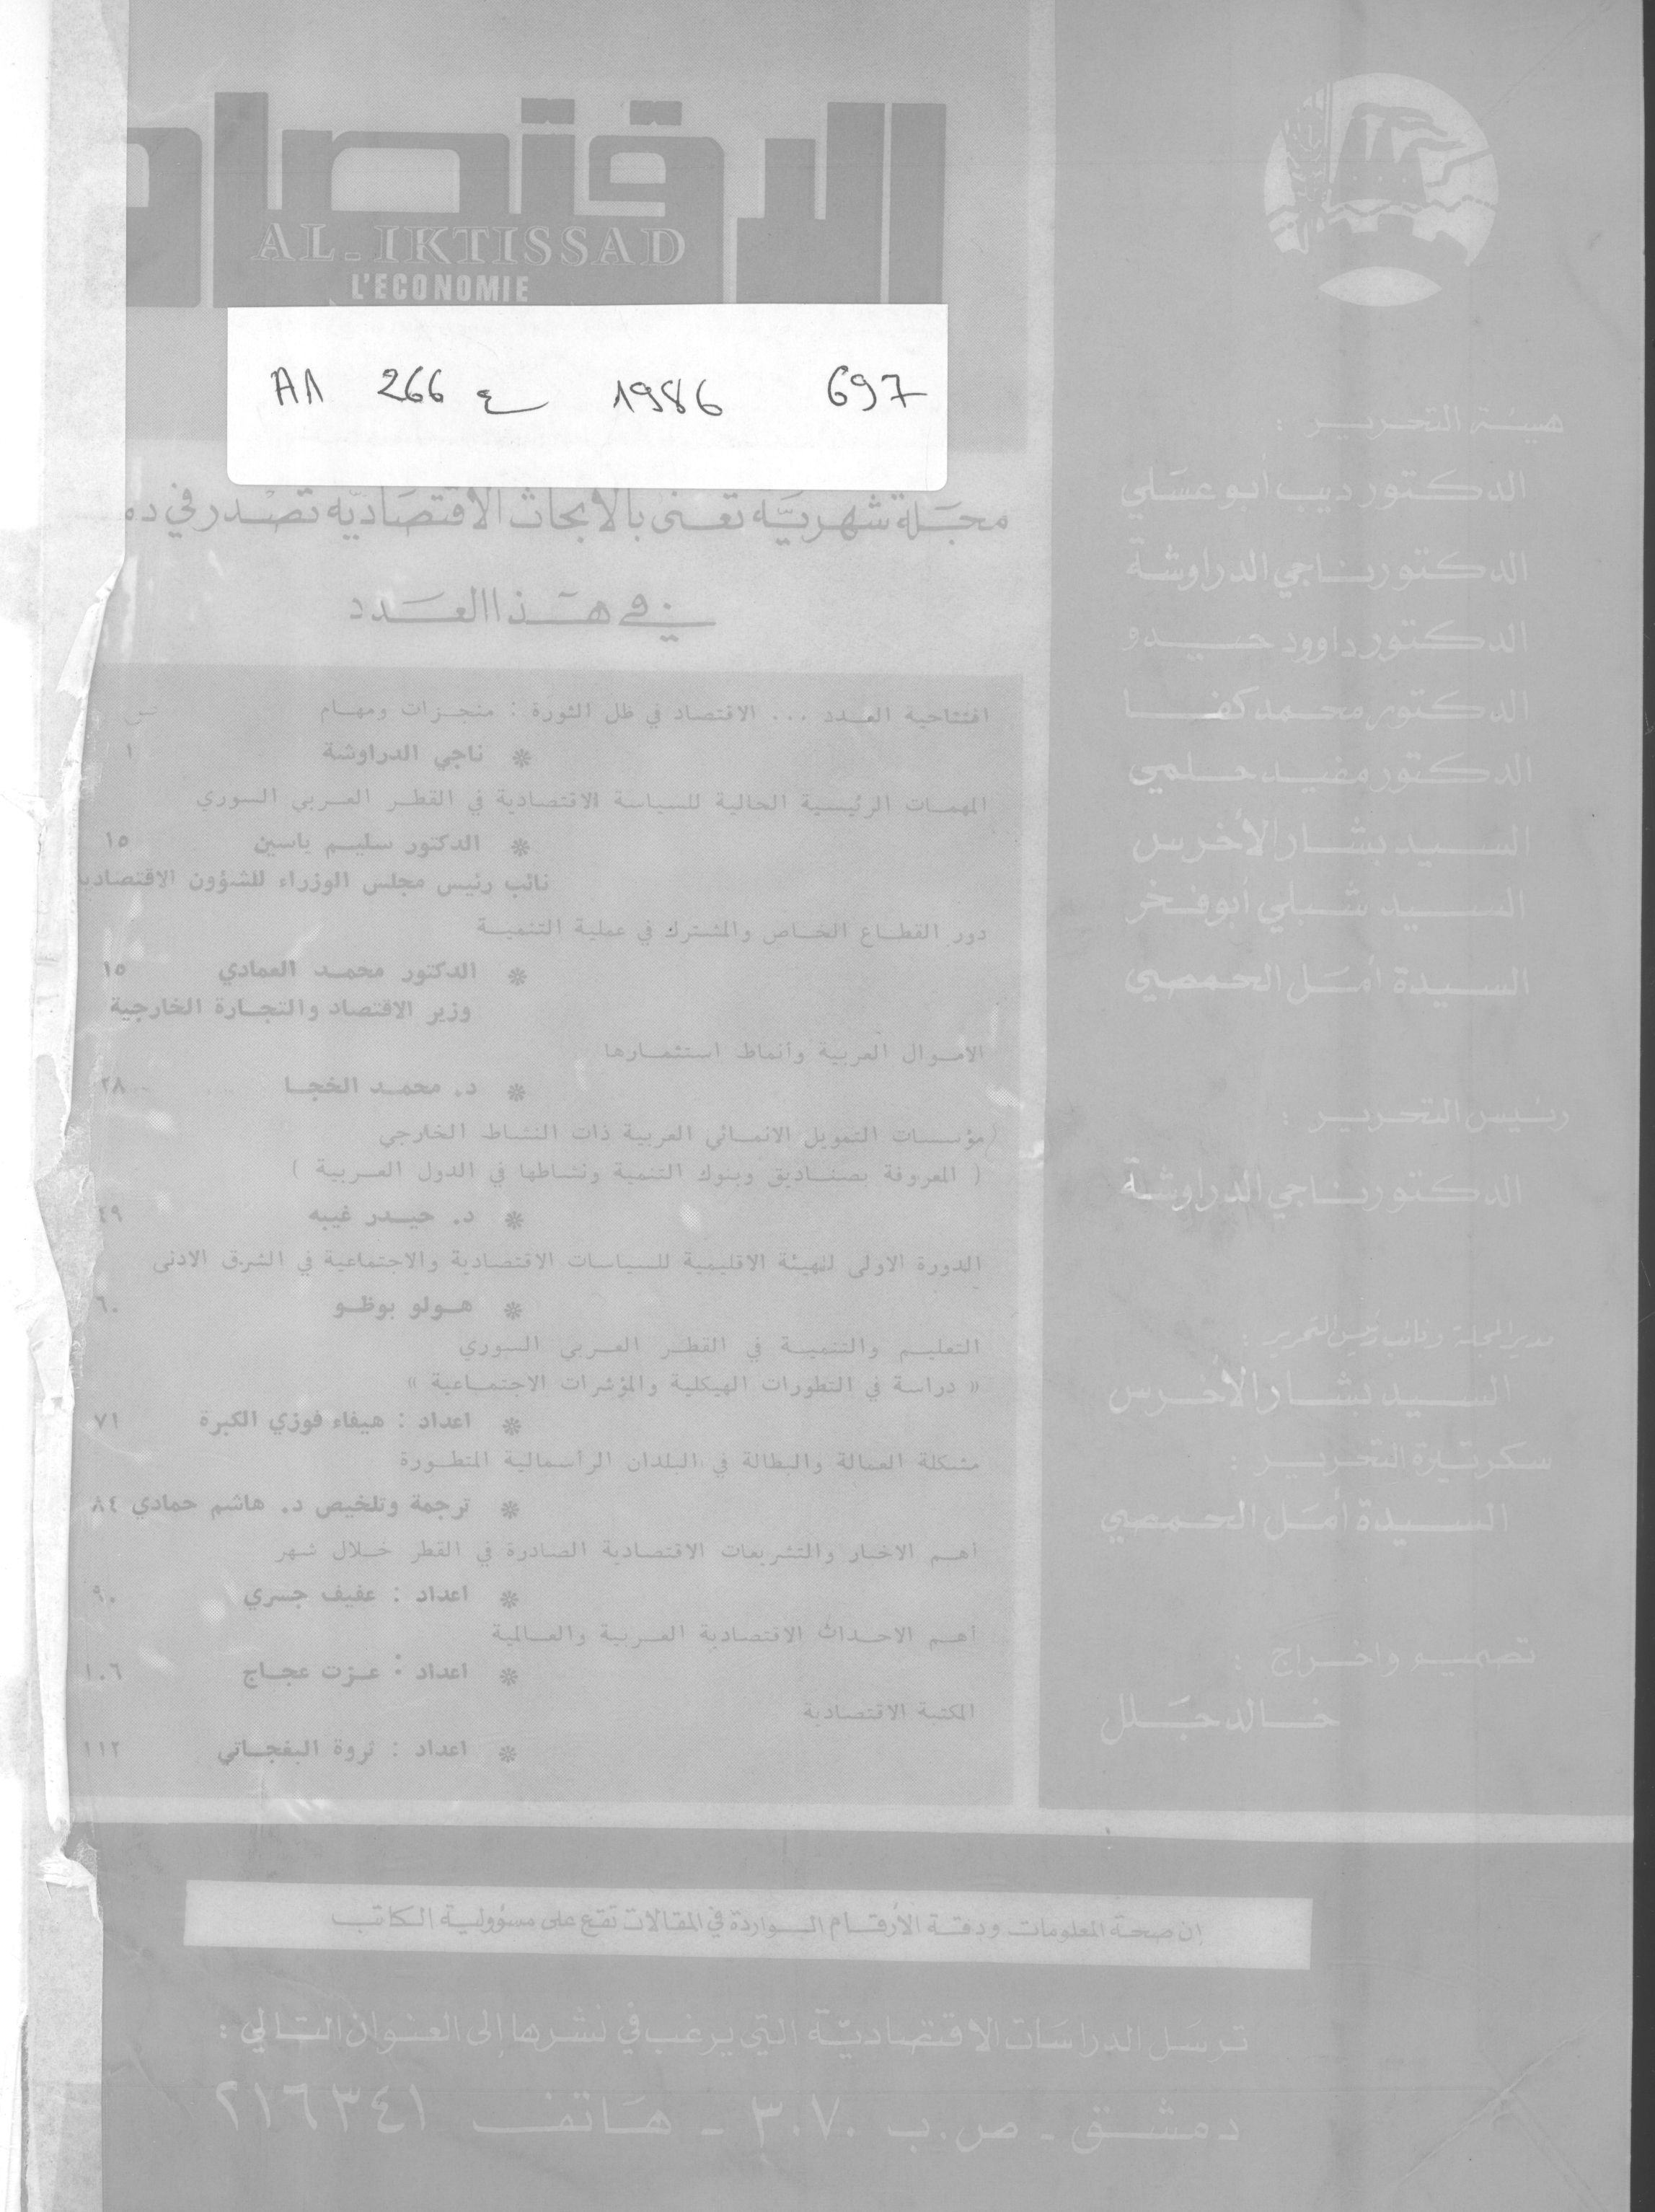 الاقتصاد
AL-IKTISSAD
L'ECONOMIE
A11 266 ع 1986 697
مجلة شهرية تعنى بالأبحاث الاقتصادية تصدر في
في هذا العدد
افتتاحية العدد ... الاقتصاد في ظل الثورة : منجزات ومهام
❋ ناجي الدراوشة ١
المهمات الرئيسية الحالية للسياسة الاقتصادية في القطر العربي السوري
❋ الدكتور سليم ياسين ١٥
نائب رئيس مجلس الوزراء للشؤون الاقتصادية
دور القطاع الخاص والمشترك في عملية التنمية
❋ الدكتور محمد العمادي ١٥
وزير الاقتصاد والتجارة الخارجية
الاموال العربية وأنماط استثمارها
❋ د. محمد الخجا ٢٨
مؤسسات التمويل الانمائي العربية ذات النشاط الخارجي
( المعروفة بصناديق وبنوك التنمية ونشاطها في الدول العربية )
❋ د. حيدر غيبه ٤٩
الدورة الاولى للهيئة الاقليمية للسياسات الاقتصادية والاجتماعية في الشرق الادنى
❋ هولو بوظو ٦٠
التعليم والتنمية في القطر العربي السوري
« دراسة في التطورات الهيكلية والمؤشرات الاجتماعية »
❋ اعداد : هيفاء فوزي الكبرة ٧١
مشكلة العمالة والبطالة في البلدان الرأسمالية المتطورة
❋ ترجمة وتلخيص د. هاشم حمادي ٨٤
أهم الاخبار والتشريعات الاقتصادية الصادرة في القطر خلال شهر
❋ اعداد : عفيف جسري ٩٠
أهم الاحداث الاقتصادية العربية والعالمية
❋ اعداد : عزت عجاج ١٠٦
المكتبة الاقتصادية
❋ اعداد : ثروة البغجاتي ١١٢
هيئة التحرير :
الدكتور ديب أبو عسلي
الدكتور ناجي الدراوشة
الدكتور داوود حيدو
الدكتور محمد كفا
الدكتور مفيد حلمي
السيد بشار الأخرس
السيد شبلي أبو فخر
السيدة أمل الحمصي
رئيس التحرير :
الدكتور ناجي الدراوشة
مدير المجلة ونائب رئيس التحرير :
السيد بشار الأخرس
سكرتيرة التحرير :
السيدة أمل الحمصي
تصميم واخراج :
خالد جلل
إن صحة المعلومات ودقة الأرقام الواردة في المقالات تقع على مسؤولية الكاتب
ترسل الدراسات الاقتصادية التي يرغب في نشرها إلى العنوان التالي :
دمشق - ص.ب ٣٠٧٠ - هاتف ٢١٦٣٤١